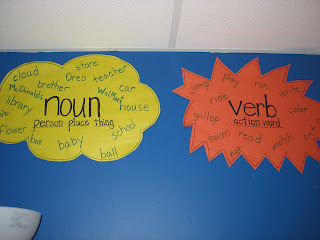 store
cloud Oreo teacher
McDonalds brother car
library WalMart
noun house
person place thing
flower school
box baby
ball
jump play run write
ride
verb color
gallop action word
swim read match